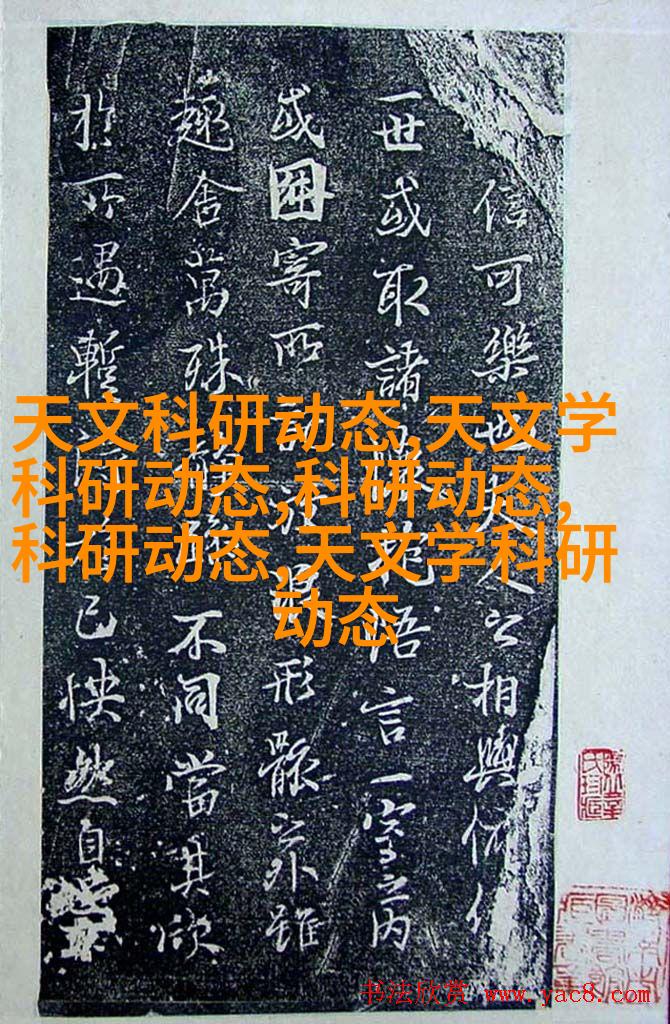 信可樂也夫人之相與俯仰
一世或取諸懷抱悟言一室之內
或因寄所託放浪形骸之外雖
趣舍萬殊靜躁不同當其欣
於所遇暫得於己怏然自
天文科研动态,天文学
科研动态,科研动态,
科研动态,天文学科研
动态
书法欣赏 www.yac8.com